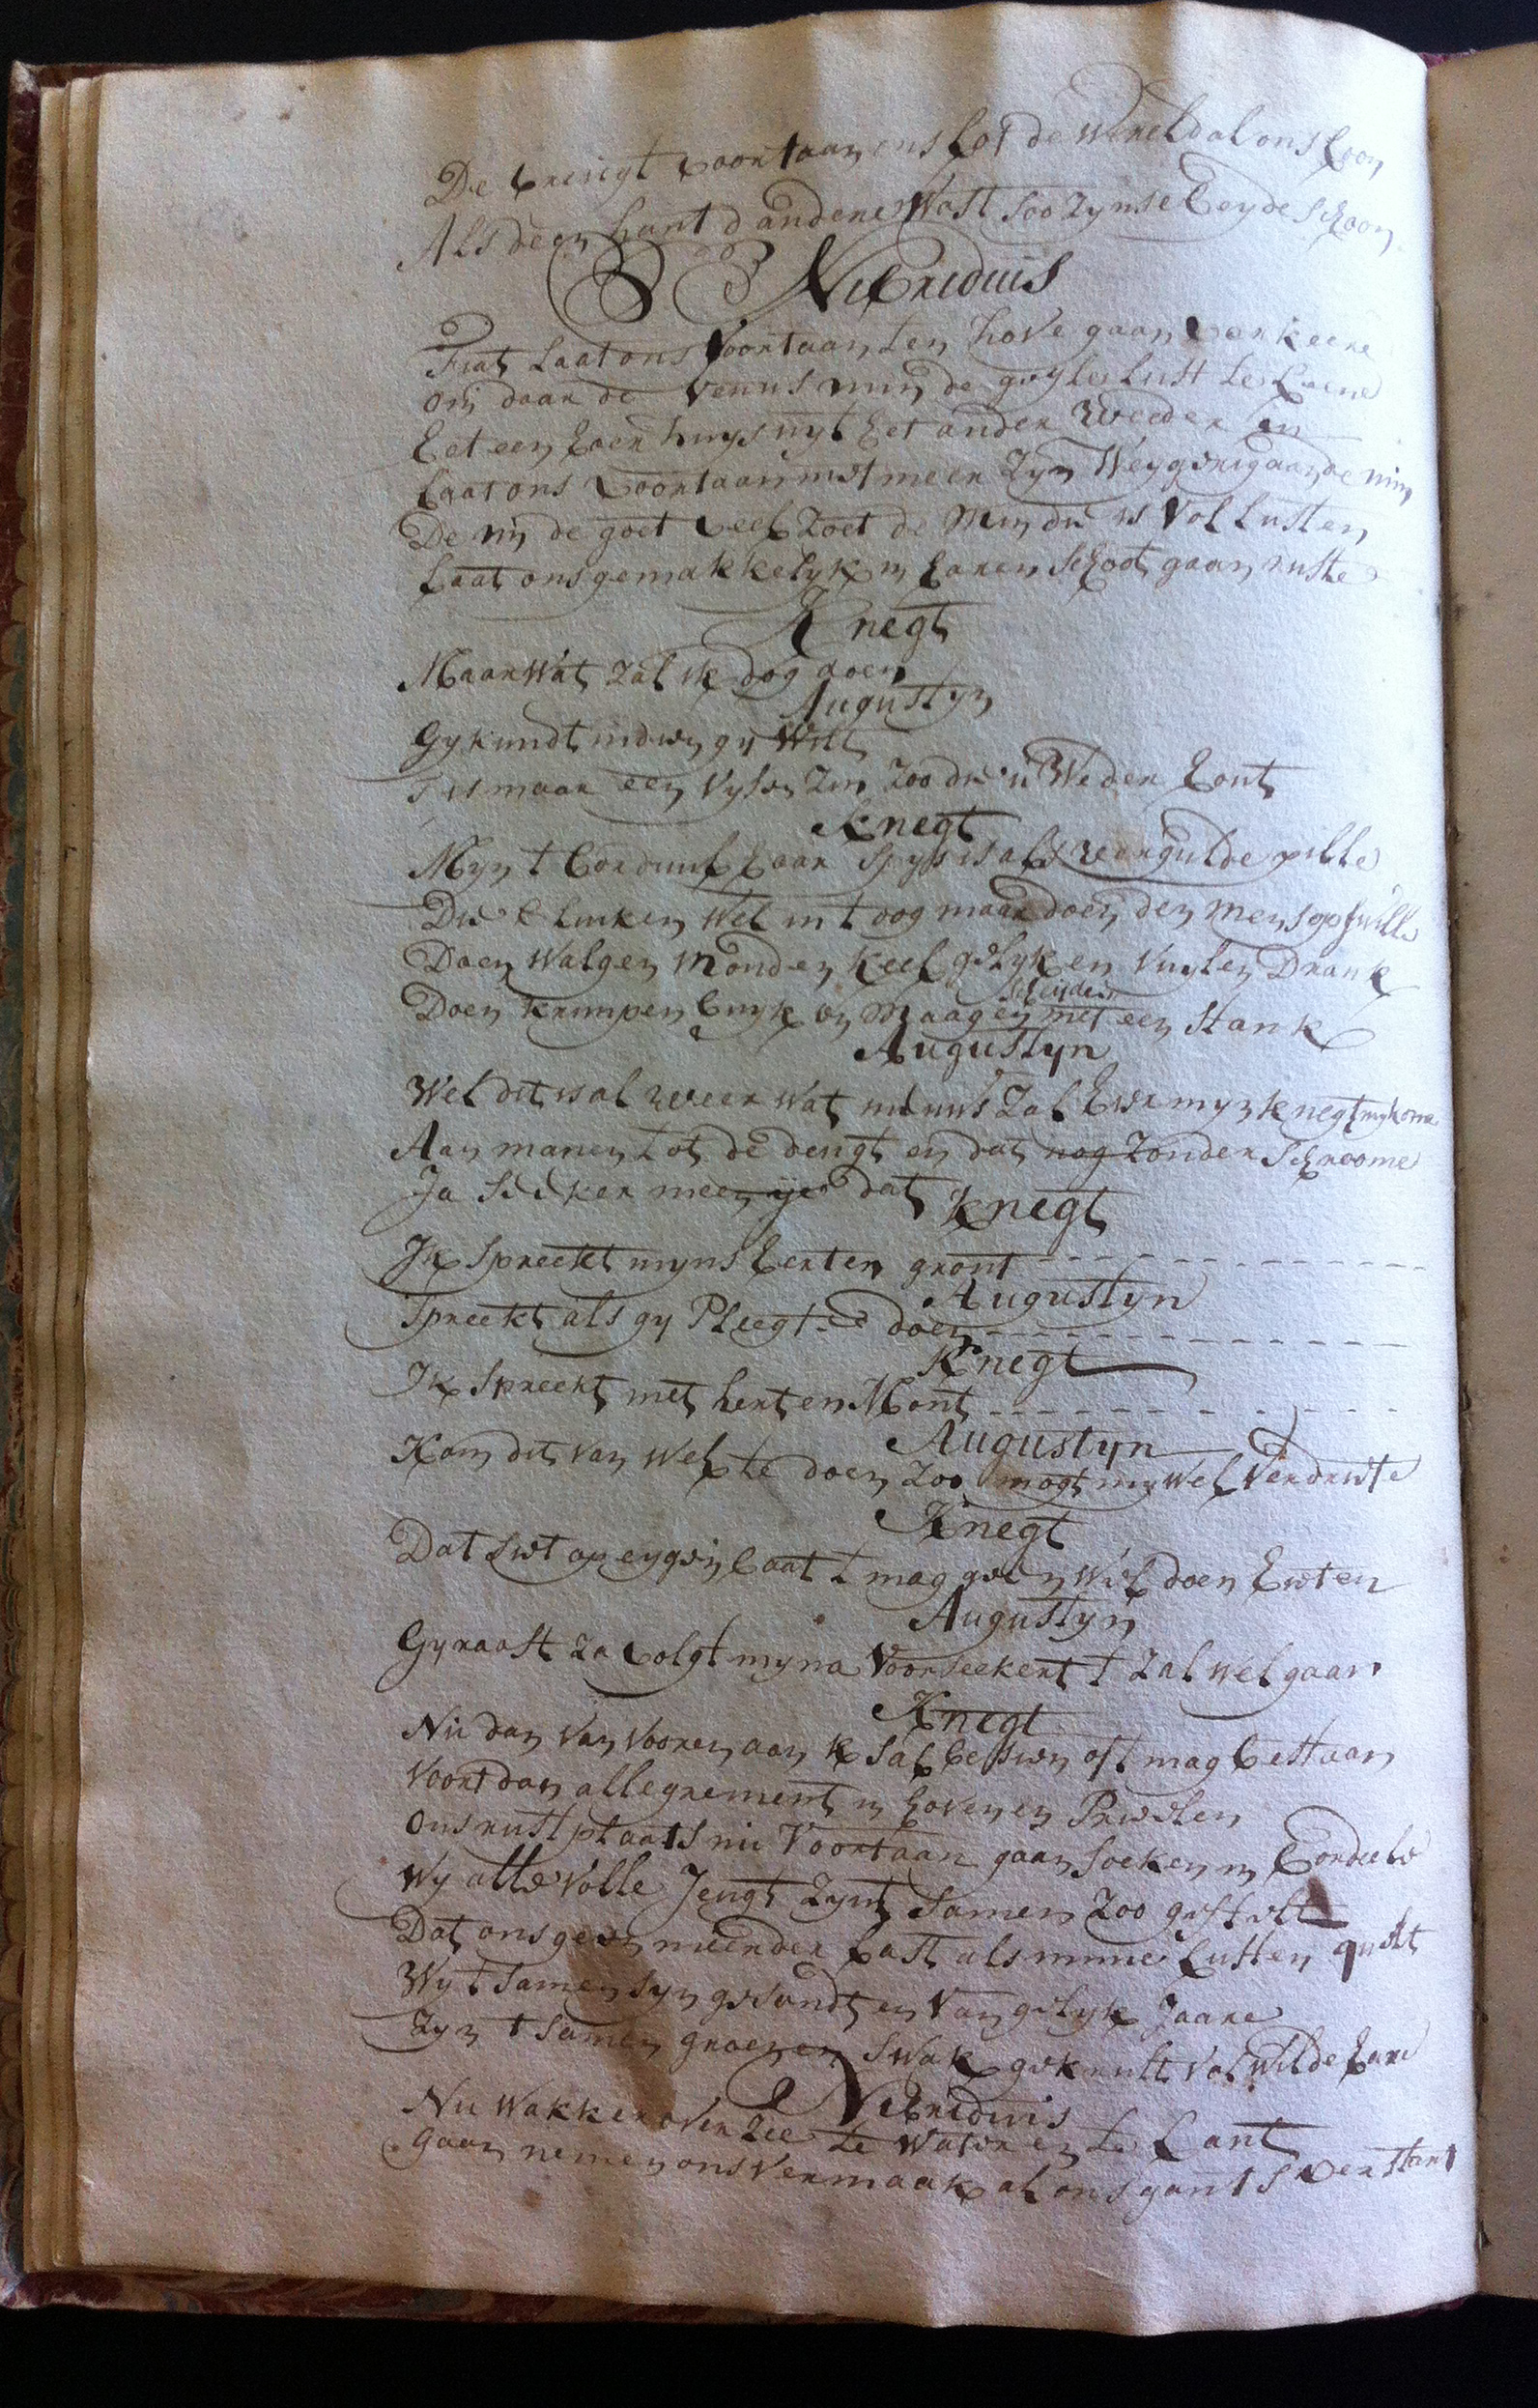 De breigt voortaan ons tot de Werelt al ons loon
Als deen hant d andere Wast soo Zynse beyde schoon
Nebridius
Fiat Laat ons Voortaan ten hove gaan verkeere
om daar de Venus min de gyle lust te leere
het een hoer huys uyt het ander weeder in
Laat ons voortaan niet meer Zyn Weygerig aan de min
De min de goet veel Zoet de Min die is Vol Lusten
Laat ons gemakkelyk in haren schoot gaan ruste
Knegt
Maar Wat Zal ik dog doen
Augustyn
Gy kundt indien gy Wilt
t is maar een Vysen Zin Zoo die u Weder hout
Knegt
Myn t borduul haar spys is als vergulde pille
Die blinken Wel in t oog maar doen den mens
Doen Walgen Mond en Keel gelyk en Vuylen Drank
Doen krimpen buyk en Maag en scheyden met een stank
Augustyn
Wel dit is al weer Wat nieuws Zal hier myn knegt my kome
Aan manen tot de deugt en dat nog Zonder schroome
Ja Seeker meen je dat
Knegt
Ik spreekt myns herten gront
Augustyn
Spreekt als gy Pleegt te doen
Knegt
Ik Spreekt met hert en Mont
Augustyn
Kom dit van Wel te doen Zoo mogt my Wel Verdriete
Knegt
Dat siet op eygen baat t mag geen Wel doen hieten
Augustyn
Gy raast Za volgt my na Voorseekert t Zal Wel gaan
Knegt
Nu dan Van Vooren aan k sal besien oft mag bestaan
Voort dan allegrement in hoven en Prieelen
Ons rustplaats nu Voortaan gaan soeken in bordeele
Wy alle Volle Jeugt Zynt samen Zoo gestelt
Dat ons geen meerder last als minne lusten quelt
Wy t samen syn gesondt en Van gelyke Jaare
Zyn t samen groen en swak gekrult Vol Wilde hare
Nebridius
Nu Wakker over Zee te Water en te Lant
Gaan nemen ons Vermaak al ons gants verstant